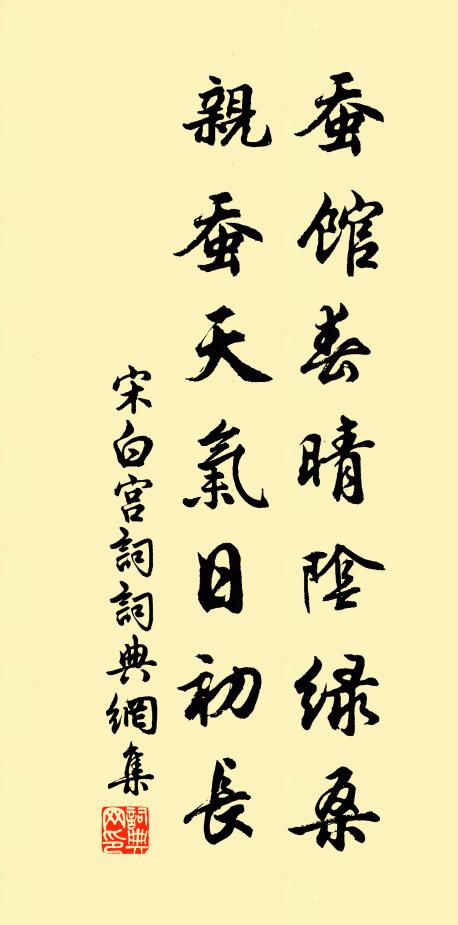 蚕馆春晴陰绿桑
親蚕天氣日初長
宋白宫詞詞典網集
詞典网印